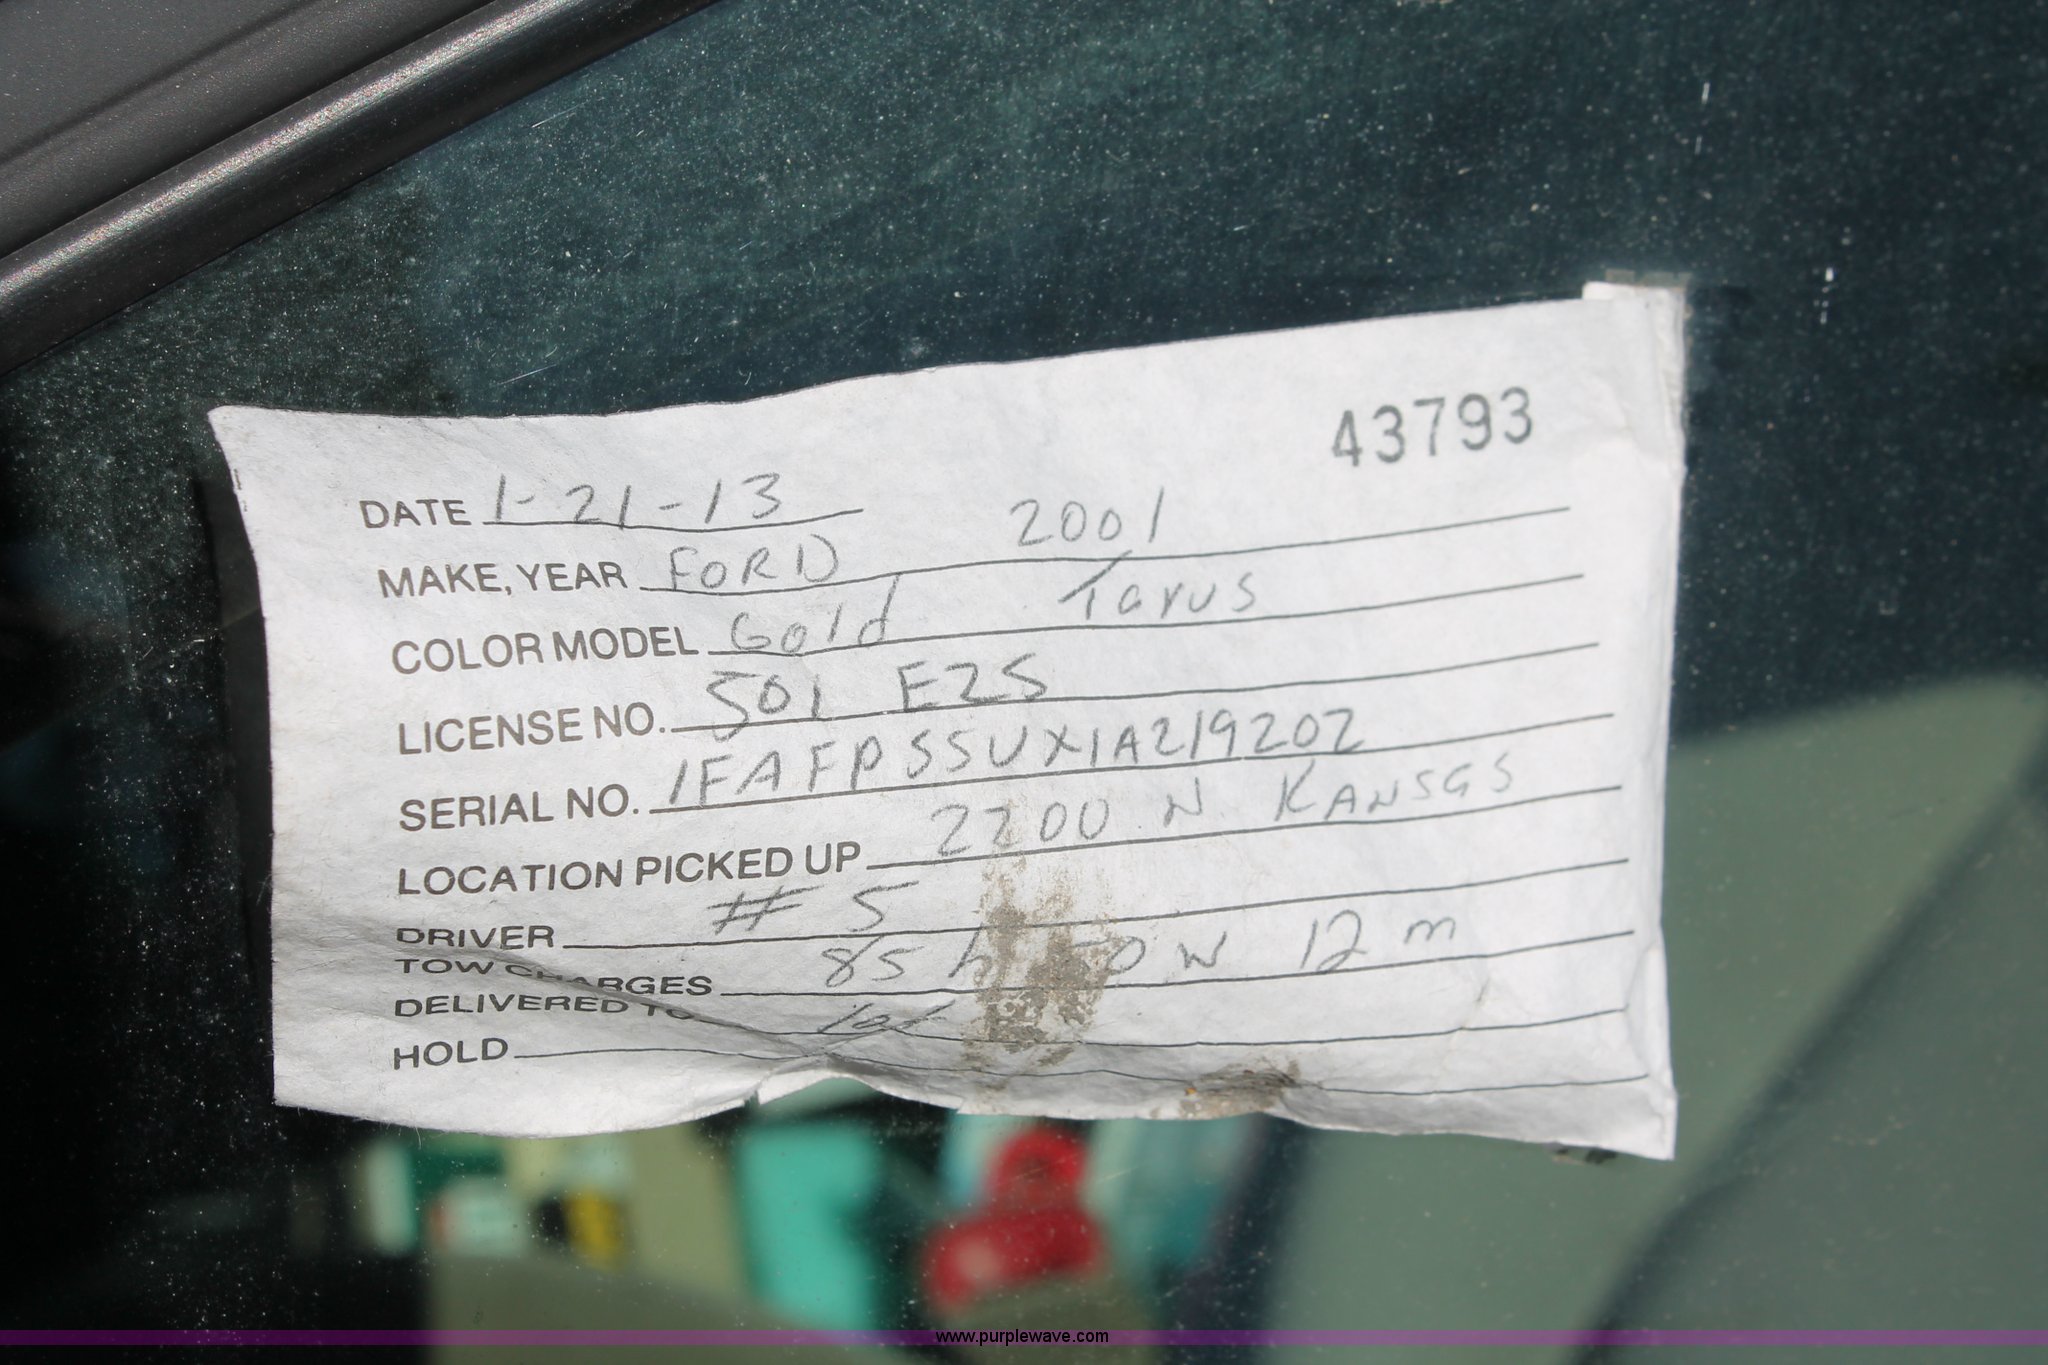 43793
DATE 1-21-13
MAKE, YEAR FORD 2001
COLOR MODEL Gold Tarus
LICENSE NO. 501 EZS
SERIAL NO. 1FAFPSSUX1A219202
LOCATION PICKED UP 2200 N. KANSAS
DRIVER # 5
TOW CHARGES 85 h 50 W 12 m
DELIVERED TO lot
HOLD
www.purplewave.com